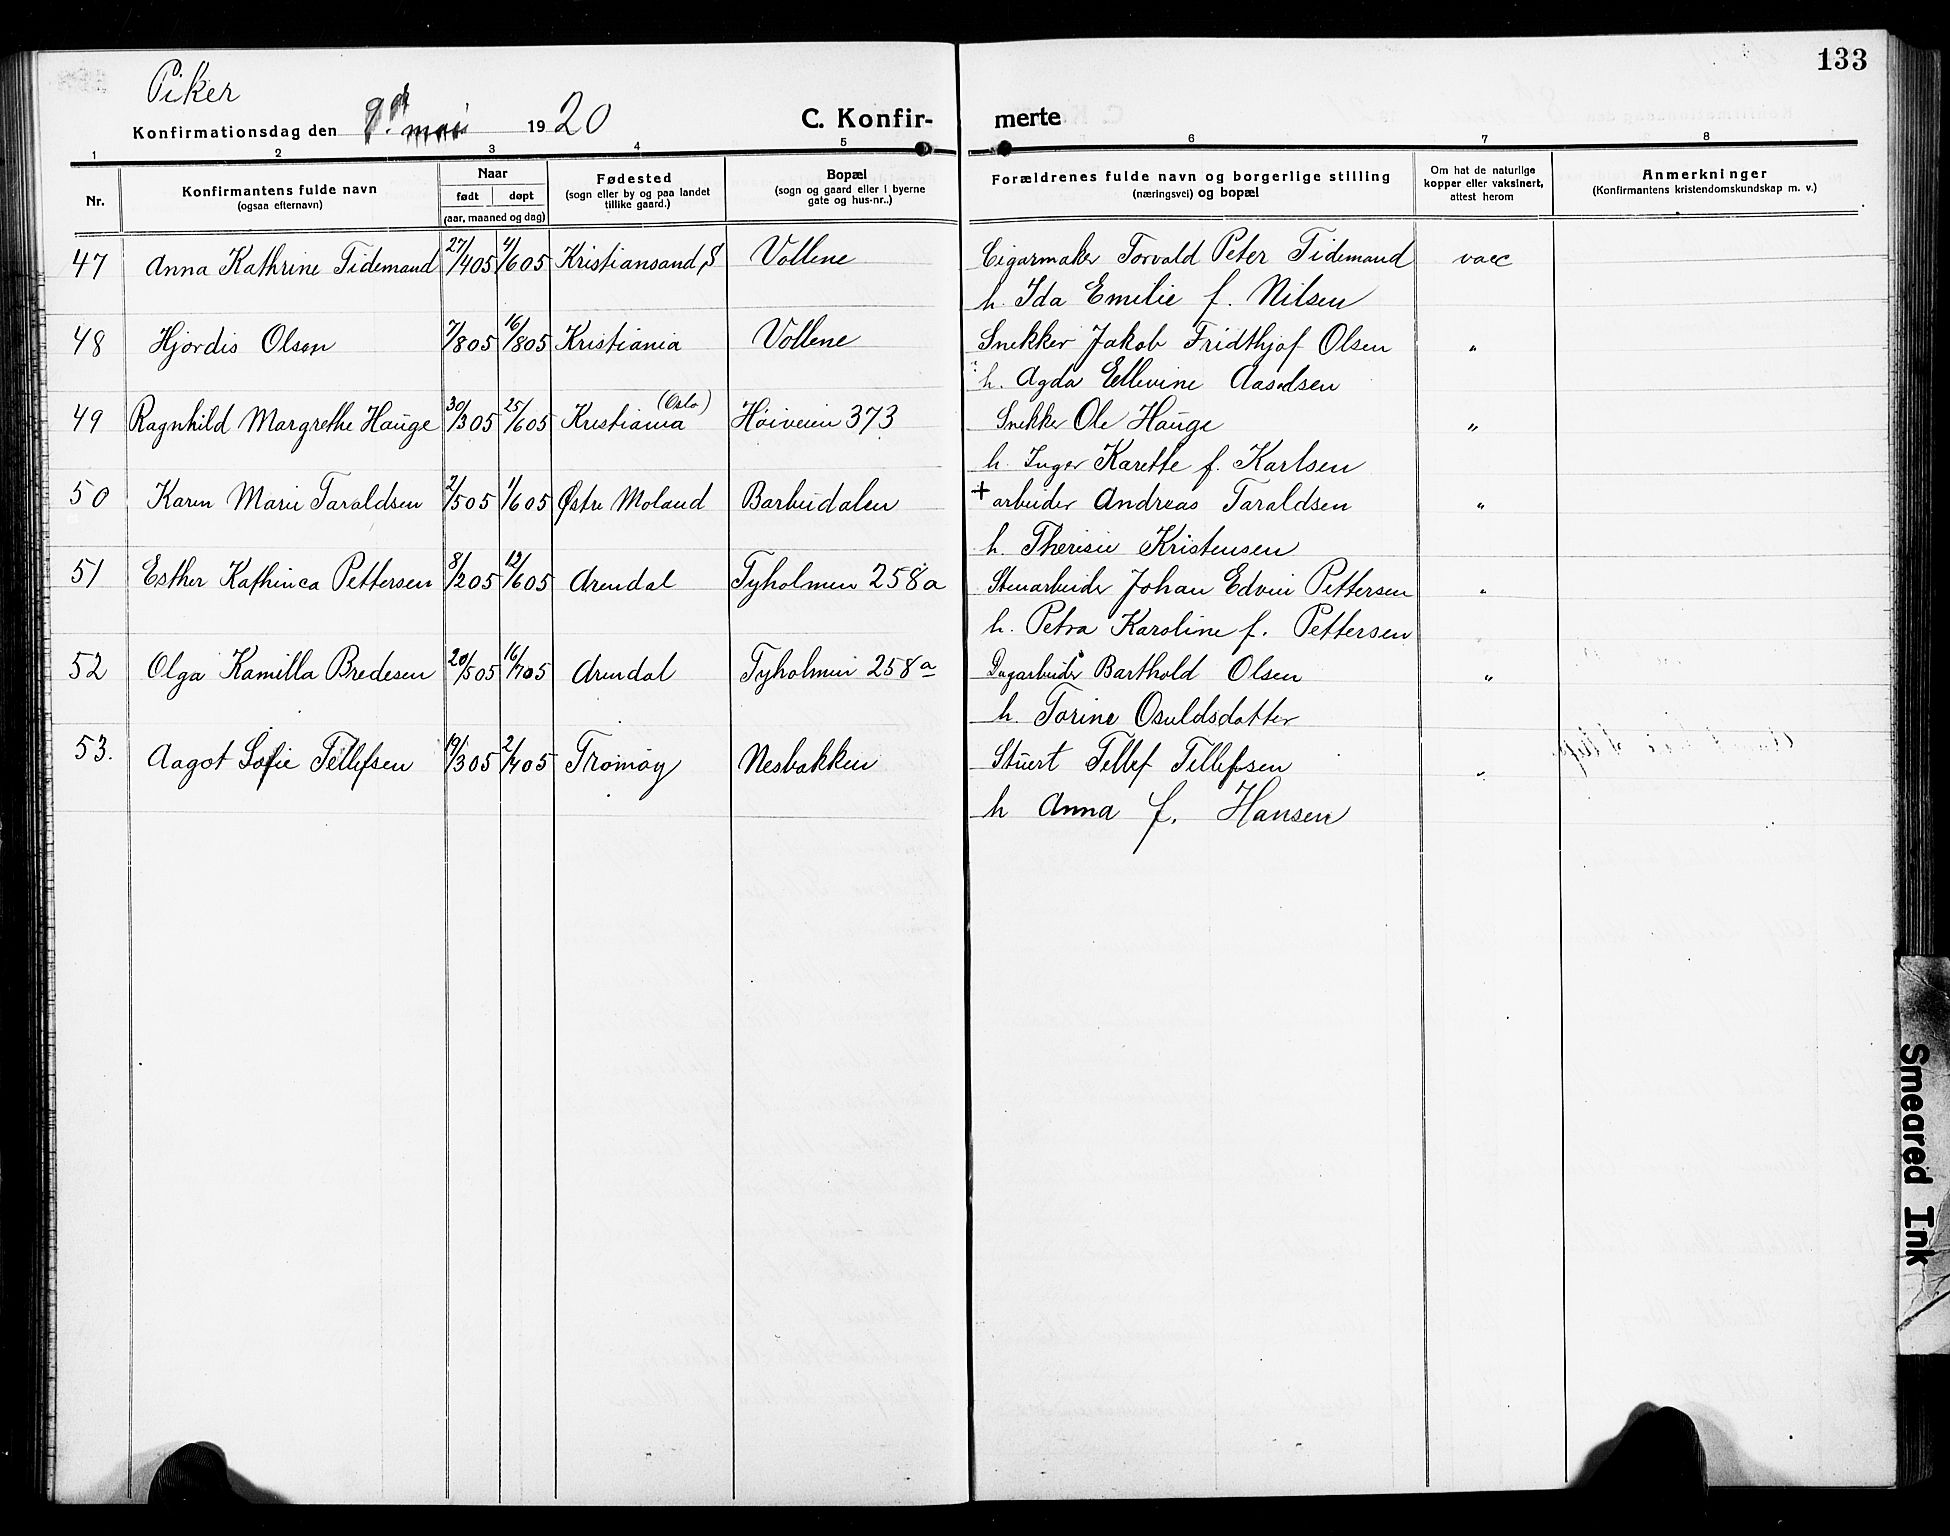 133
Piker
Konfirmationsdag den 9d. mai 1920 C. Konfirmerte
1 2 3 4 5 6 7 8
Nr. Konfirmantens fulde navn (ogsaa efternavn) Naar født døpt (aar, maaned og dag) Fødested (sogn eller by og paa landet tillike gaard.) Bopæl (sogn og gaard eller i byerne gate og hus-nr..) Forældrenes fulde navn og borgerlige stilling (næringsvei) og bopæl Om hat de naturlige kopper eller vaksinert, attest herom Anmerkninger (Konfirmantens kristendomskundskap m. v.)
47 Anna Kathrine Tidemand 27/4 05 4/6 05 Kristiansand, S Vollene Cigarmaker Torvald Peter Tidemand vacc
h. Ida Emilie f. Nilsen
48 Hjørdis Olsen 7/8 05 16/8 05 Kristiania Vollene Snekker Jakob Fridthjof Olsen "
h. Agda Ellevine Aasodsen
49 Ragnhild Margrethe Hauge 30/3 05 25/6 05 Kristiania (Oslo) Høiveien 373 Snekker Ole Hauge "
h. Inger Karette f. Karlsen
50 Karen Marie Taraldsen 2/5 05 1/6 05 Østre Moland Barbudalen + arbeider Andreas Taraldsen "
h. Theresie Kristensen
51 Esther Kathinca Pettersen 8/2 05 12/6 05 Arendal Tyholmen 258a Stenarbeider Johan Edvin Pettersen "
h. Petra Karoline f. Pettersen
52 Olga Kamilla Bredesen 20/5 05 16/7 05 Arendal Tyholmen 258a Dagarbeider Barthold Olsen "
h. Torine Osuldsdatter
53. Aagot Sofie Tellefsen 19/3 05 2/4 05 Tromøy Nesbakken Stuert Tellef Tellefsen "
h Anna f. Hansen
Smeared Ink